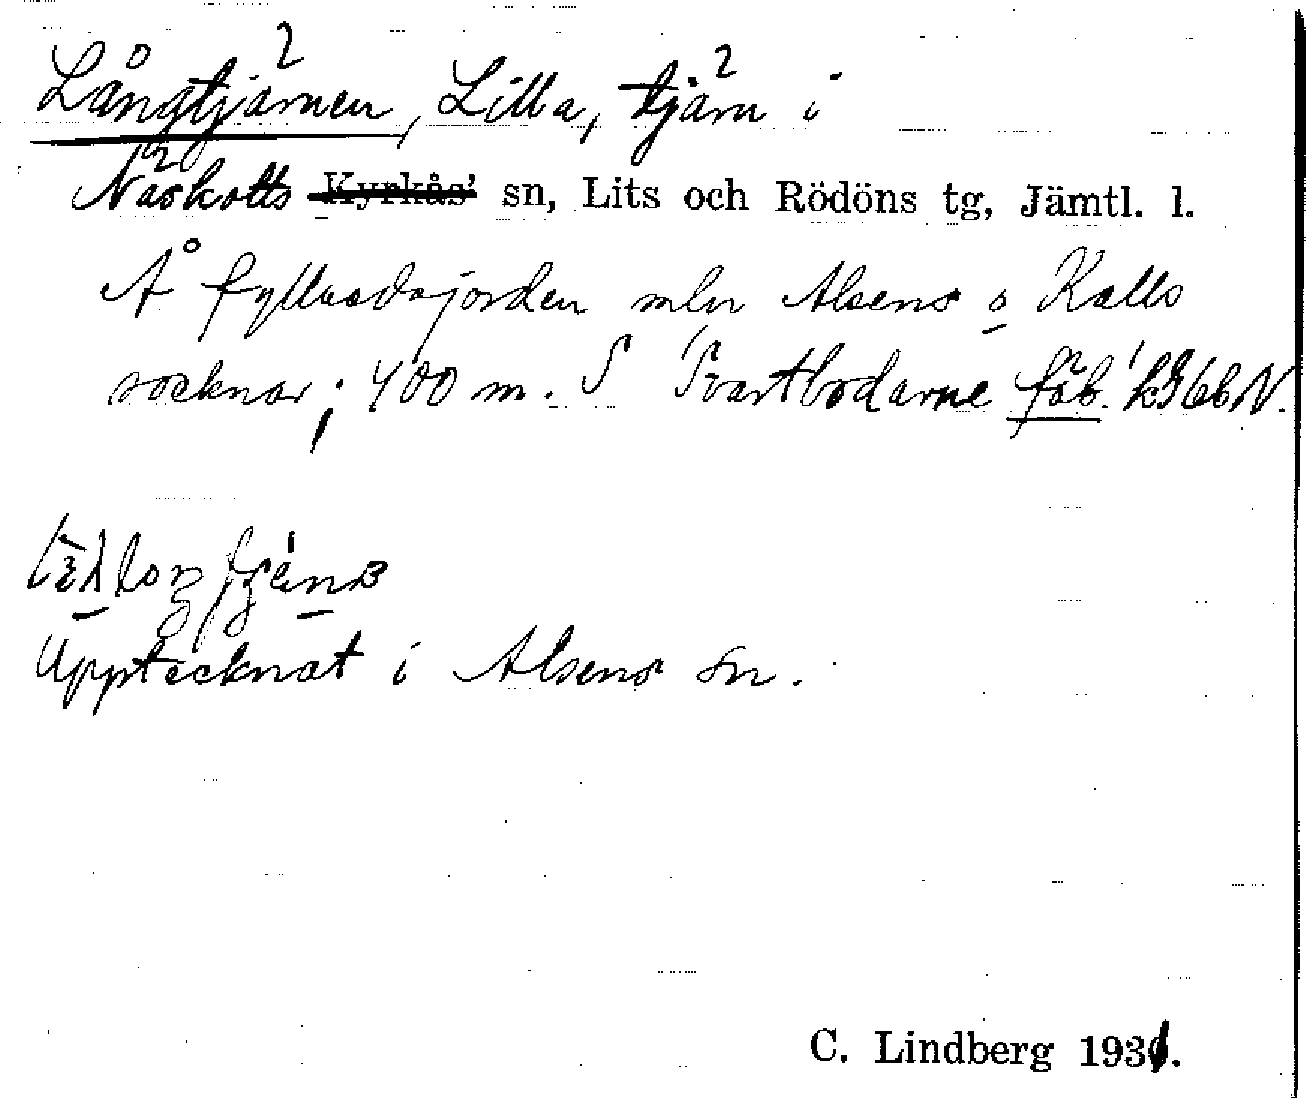 Långtjärnen, Lilla, tjärn i
Näskotts Kyrkås' sn, Lits och Rödöns tg, Jämtl. l.
Å fyllnadsjorden mln Alsens o Kalls
socknar; 400 m. S Svartbodarne fäb. k 56b N.
Upptecknat i Alsens sn.
C. Lindberg 1931.